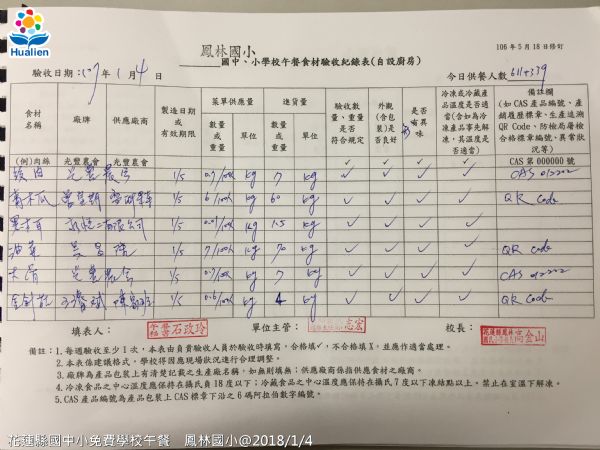 Hualien
106年5月18日修訂
鳳林國小
國中、小學校午餐食材驗收紀錄表(自設廚房)
驗收日期:107年1月4日
今日供餐人數611+339
食材名稱 廠牌 供應廠商 製造日期或有效期限 菜單供應量 數量或重量 單位 進貨量 數量或重量 單位 驗收數量、重量是否符合規定 外觀(含包裝)是否良好 是否有異味 冷凍或冷藏產品溫度是否適當(含如為冷凍產品事先解凍,其溫度是否適當) 備註欄(如CAS產品編號、生產履歷標章、生產追溯QR Code、防檢局屠檢合格標章編號、異常狀況等)
(例)肉絲 光豐農會 光豐農會 ✓ ✓ ✓ ✓ CAS 第000000號
光豐農會 1/5 0.7/100人 kg 7 kg ✓ ✓ ✓ ✓ CAS 012202
青木瓜 1/5 6/100人 kg 60 kg ✓ ✓ ✓ ✓ QR Code
黑木耳 有限公司 1/5 kg 1.5 kg ✓ ✓ ✓ ✓
油菜 1/5 7/100人 kg 70 kg ✓ ✓ ✓ ✓ QR Code
大骨 光豐農會 1/5 0.7/100人 kg 7 kg ✓ ✓ ✓ ✓ CAS 012202
金針菇 1/5 0.6/100人 kg 4 kg ✓ ✓ ✓ ✓ QR Code
填表人: 石玫玲 單位主管: 志宏 校長: 花蓮縣鳳林 高金山
備註:1.每週驗收至少1次,本表由負責驗收人員於驗收時填寫,合格填✓,不合格填X,並應作適當處理。
2.本表係建議格式,學校得因應現場狀況進行合理調整。
3.廠牌為產品包裝上有清楚記載之生產廠名稱,如無則填無;供應廠商係指供應食材之廠商。
4.冷凍食品之中心溫度應保持在攝氏負18度以下;冷藏食品之中心溫度應保持在攝氏7度以下凍結點以上。禁止在室溫下解凍。
5.CAS產品編號為產品包裝上CAS標章下沿之6碼阿拉伯數字編號。
花蓮縣國中小免費學校午餐 鳳林國小@2018/1/4